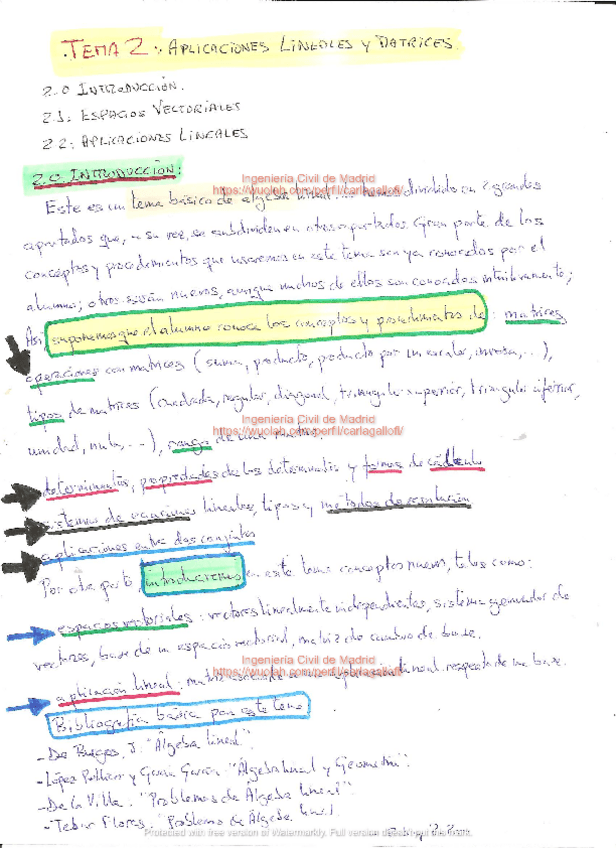 TEMA 2: APLICACIONES LINEALES Y MATRICES.
2.0 INTRODUCCIÓN.
2.1. ESPACIOS VECTORIALES
2.2. APLICACIONES LINEALES
2.0. INTRODUCCIÓN:
Ingeniería Civil de Madrid
https://wuolah.com/perfil/carlagallofl/
Este es un tema básico de álgebra lineal. hemos dividido en 2 grandes
apartados que, a su vez, se subdividen en otros apartados. Gran parte de los
conceptos y procedimientos que usaremos en este tema son ya conocidos por el
alumno; otros serán nuevos, aunque muchos de ellos son conocidos intuitivamente;
Así suponemos que el alumno conoce los conceptos y procedimientos de: matrices,
operaciones con matrices (suma, producto, producto por un escalar, inversa,...),
tipos de matrices (cuadrada, regular, diagonal, triangular superior, triangular inferior,
Ingeniería Civil de Madrid
https://wuolah.com/perfil/carlagallofl/
unidad, nula,...), rango de una matriz
determinantes, propiedades de los determinantes y formas de cálculo
sistemas de ecuaciones lineales, tipos y métodos de resolución
aplicaciones entre dos conjuntos
Por otra parte, introduciremos en este tema conceptos nuevos, tales como:
espacios vectoriales: vectores linealmente independientes, sistema generador de
vectores, base de un espacio vectorial, matriz de cambio de base.
Ingeniería Civil de Madrid
https://wuolah.com/perfil/carlagallofl/
aplicación lineal: matriz asociada a una aplicación lineal respecto de una base.
Bibliografía básica para este tema
- De Burgos, J. "Álgebra lineal".
- López Pellicer y García García: "Álgebra lineal y Geometría".
- De la Villa. "Problemas de Álgebra lineal"
- Tebar Flores. "Problemas de Álgebra lineal.
Protected with free version of Watermarkly. Full version doesn't put this mark.